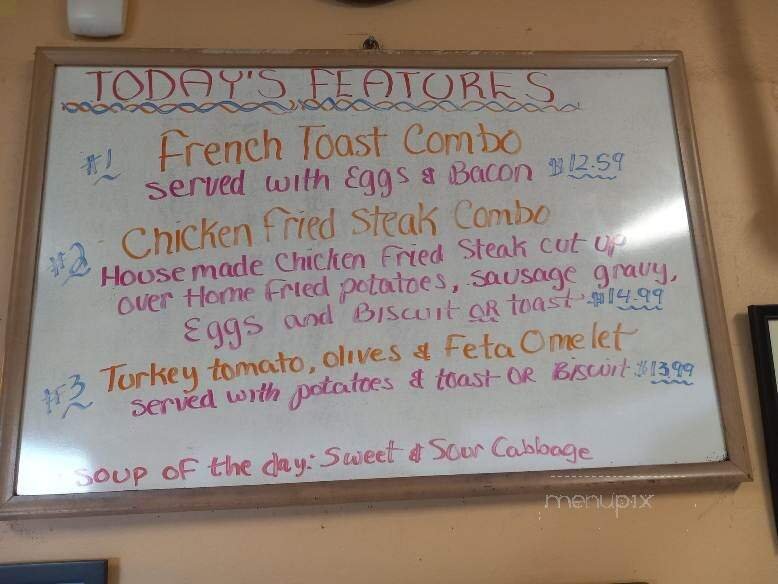 TODAY'S FEATURES
#1 French Toast Combo
served with Eggs & Bacon $12.59
#2 Chicken Fried Steak Combo
House made Chicken Fried Steak cut up
over Home Fried potatoes, sausage gravy,
Eggs and Biscuit OR toast $14.99
#3 Turkey tomato, olives & Feta Omelet
served with potatoes & toast OR Biscuit $13.99
Soup of the day: Sweet & Sour Cabbage
menupix